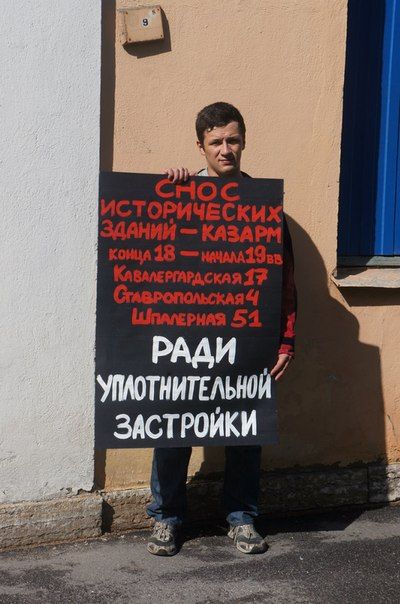 9
СНОС
ИСТОРИЧЕСКИХ
ЗДАНИЙ – КАЗАРМ
КОНЦА 18 – НАЧАЛА 19 ВВ
КАВАЛЕРГАРДСКАЯ 17
СТАВРОПОЛЬСКАЯ 4
ШПАЛЕРНАЯ 51
РАДИ
УПЛОТНИТЕЛЬНОЙ
ЗАСТРОЙКИ